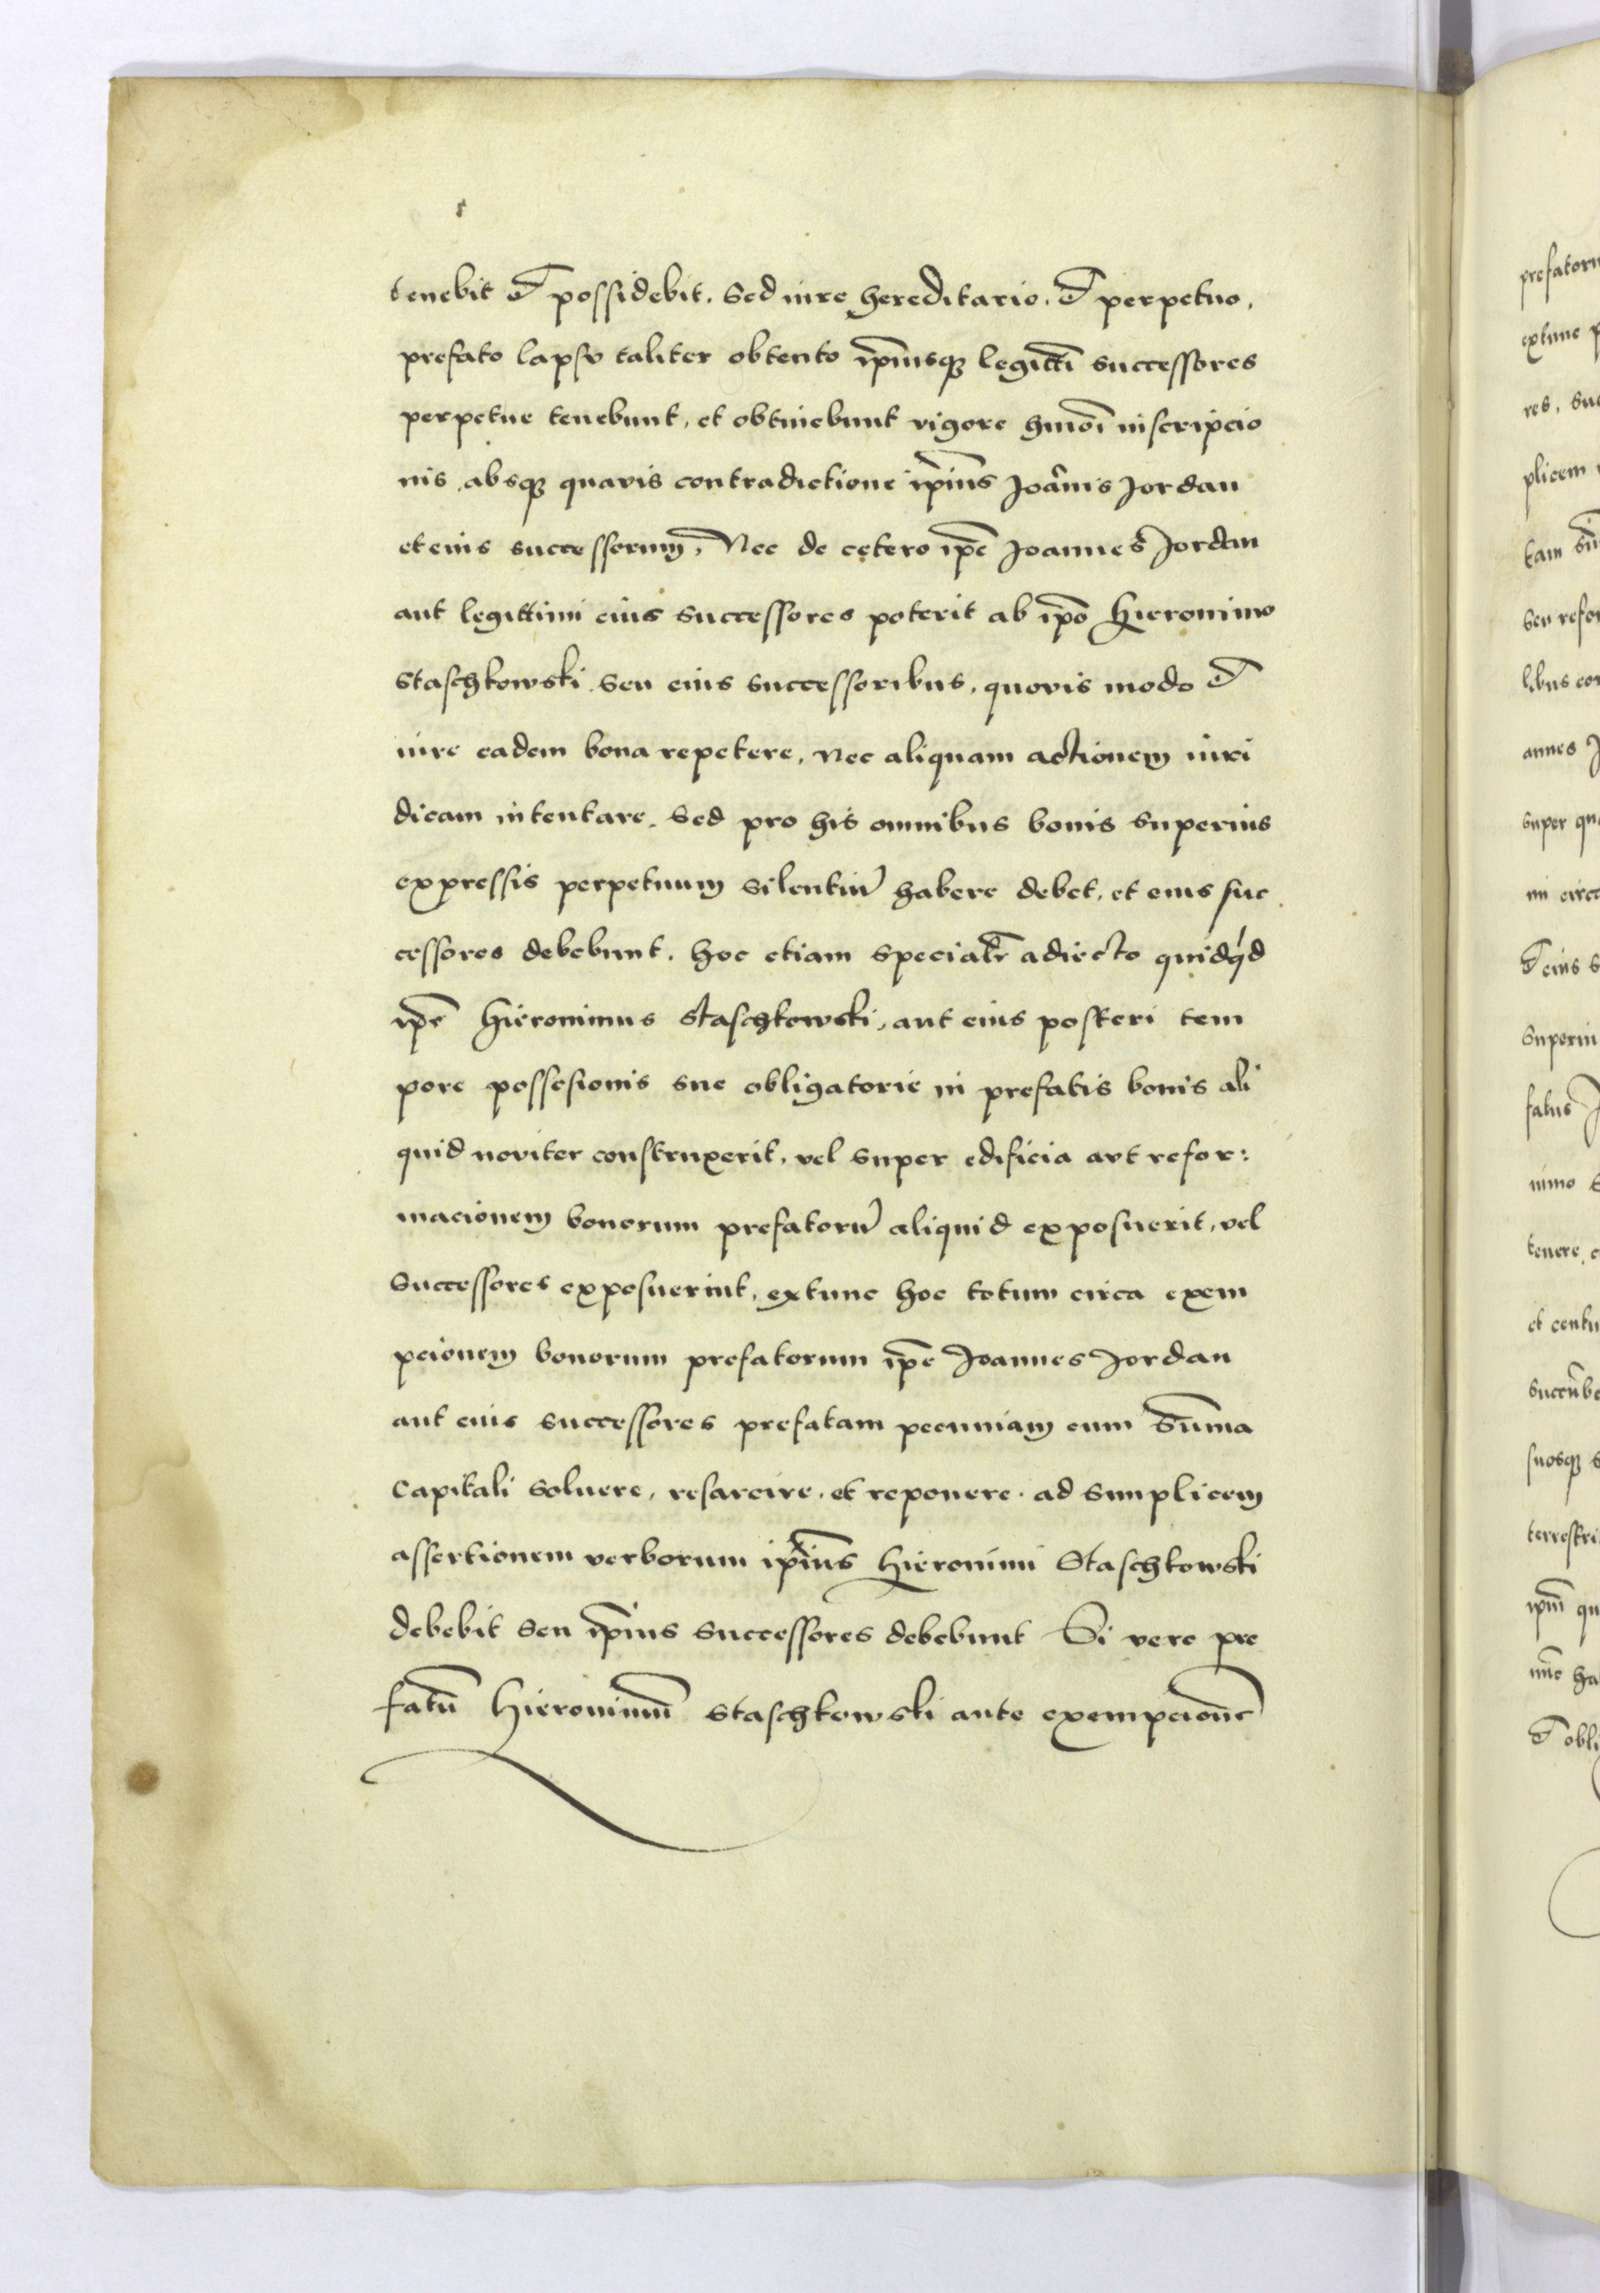 tenebit et possidebit. Sed iure hereditario. et perpetuo.
prefato lapsu taliter obtento ip̄iusq̢ legittī successores
perpetue tenebunt, et obtinebunt vigore hmōi inscripcio
nis absq̢ quavis contradictione ip̄ius Joānis Jordan
et eius successorum, Nec de cetero ip̄e Joannes Jordan
aut legittimi eius successores poterit ab ip̄o Hieronimo
Staschkowski seu eius successoribus, quovis modo et
iure eadem bona repetere, nec aliquam actionem iuri
dicam intentare. Sed pro his omnibus bonis superius
expressis perpetuum silentiū habere debet. et eius suc
cessores debebunt. hoc etiam specialr̄ adiecto quidq́d
ip̄e Hieronimus Staschkowski, aut eius posteri tem
pore possesionis sue obligatorie in prefatis bonis ali
quid noviter construxerit, vel super edificia aut refor:
macionem bonorum prefatorū aliquid exposuerit, vel
Successores exposuerint, extunc hoc totum circa exem
pcionem bonorum prefatorum ip̄e Joannes Jordan
aut eius successores prefatam pecuniam cum Sūma
Capitali soluere, resarcire. et reponere. ad simplicem
assertionem verborum ip̄ius Hieronimi Staschkowski
debebit seu ip̄ius successores debebunt Si vero pre
fatū Hieronimū Staschkowski ante exempcionē